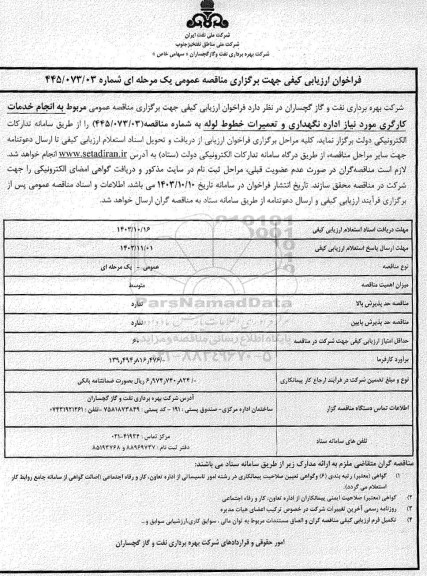 شرکت ملی نفت ایران
شرکت ملی مناطق نفتخیز جنوب
شرکت بهره برداری نفت وگاز گچساران « سهامی خاص »
فراخوان ارزیابی کیفی جهت برگزاری مناقصه عمومی یک مرحله ای شماره ۴۴۵/۰۷۳/۰۳
شرکت بهره برداری نفت و گاز گچساران در نظر دارد فراخوان ارزیابی کیفی جهت برگزاری مناقصه عمومی مربوط به انجام خدمات
کارگری مورد نیاز اداره نگهداری و تعمیرات خطوط لوله به شماره مناقصه(۴۴۵/۰۷۳/۰۳) را از طریق سامانه تدارکات
الکترونیکی دولت برگزار نماید. کلیه مراحل برگزاری فراخوان ارزیابی از دریافت و تحویل اسناد استعلام ارزیابی کیفی تا ارسال دعوتنامه
جهت سایر مراحل مناقصه، از طریق درگاه سامانه تدارکات الکترونیکی دولت (ستاد) به آدرس www.setadiran.ir انجام خواهد شد.
لازم است مناقصه‌گران در صورت عدم عضویت قبلی، مراحل ثبت نام در سایت مذکور و دریافت گواهی امضای الکترونیکی را جهت
شرکت در مناقصه محقق سازند. تاریخ انتشار فراخوان در سامانه تاریخ ۱۴۰۳/۱۰/۱۰ می باشد. اطلاعات و اسناد مناقصه عمومی پس از
برگزاری فرآیند ارزیابی کیفی و ارسال دعوتنامه از طریق سامانه ستاد به مناقصه گران ارسال خواهد شد.
مهلت دریافت اسناد استعلام ارزیابی کیفی ۱۴۰۳/۱۰/۱۶
مهلت ارسال پاسخ استعلام ارزیابی کیفی ۱۴۰۳/۱۱/۰۱
نوع مناقصه عمومی - یک مرحله ای
میزان اهمیت مناقصه متوسط
مناقصه حد پذیرش بالا ندارد
مناقصه حد پذیرش پایین ندارد
حداقل امتیاز ارزیابی کیفی جهت شرکت در مناقصه ۶۰
برآورد کارفرما ۱۳۹,۴۹۴,۸۱۶,۴۷۶/-
نوع و مبلغ تضمین شرکت در فرآیند ارجاع کار پیمانکاری ۶,۹۷۴,۷۴۰,۸۲۴/- ریال بصورت ضمانتنامه بانکی
اطلاعات تماس دستگاه مناقصه گزار آدرس شرکت بهره برداری نفت و گاز گچساران
ساختمان اداره مرکزی- صندوق پستی : ۱۹۱ - کد پستی: ۷۵۸۱۸۷۳۸۴۹ -تلفن : ۰۷۴۳۱۹۲۱۴۶۱
تلفن های سامانه ستاد مرکز تماس : ۴۱۹۳۴-۰۲۱
دفتر ثبت نام : ۸۸۹۶۹۷۳۷ و ۸۵۱۹۳۷۶۸
مناقصه گران متقاضی ملزم به ارائه مدارک زیر از طریق سامانه ستاد می باشند:
۱) گواهی (معتبر) رتبه بندی (۶) وگواهی تعیین صلاحیت پیمانکاری در رشته امور تاسیساتی از اداره تعاون، کار و رفاه اجتماعی (اصالت گواهی از سامانه جامع روابط کار
استعلام می گردد).
۲) گواهی (معتبر) صلاحیت ایمنی پیمانکاران از اداره تعاون، کار و رفاه اجتماعی
۳) روزنامه رسمی آخرین تغییرات شرکت در خصوص ترکیب اعضای هیات مدیره
۴) تکمیل فرم ارزیابی کیفی مناقصه گران و الصاق مستندات مربوط به توان مالی . سوابق کاری،ارزشیابی سوابق و...
امور حقوقی و قراردادهای شرکت بهره برداری نفت و گاز گچساران
ParsNamadData
۰۲۱-۸۸۳۴۹۶۷۰-۵